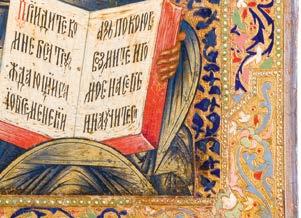 Прїидите ко
мне вси трꙋ
ждающїися
и ѡбременени
и азъ покою вы
возмите иго
мое на себѣ
и наꙋчитес